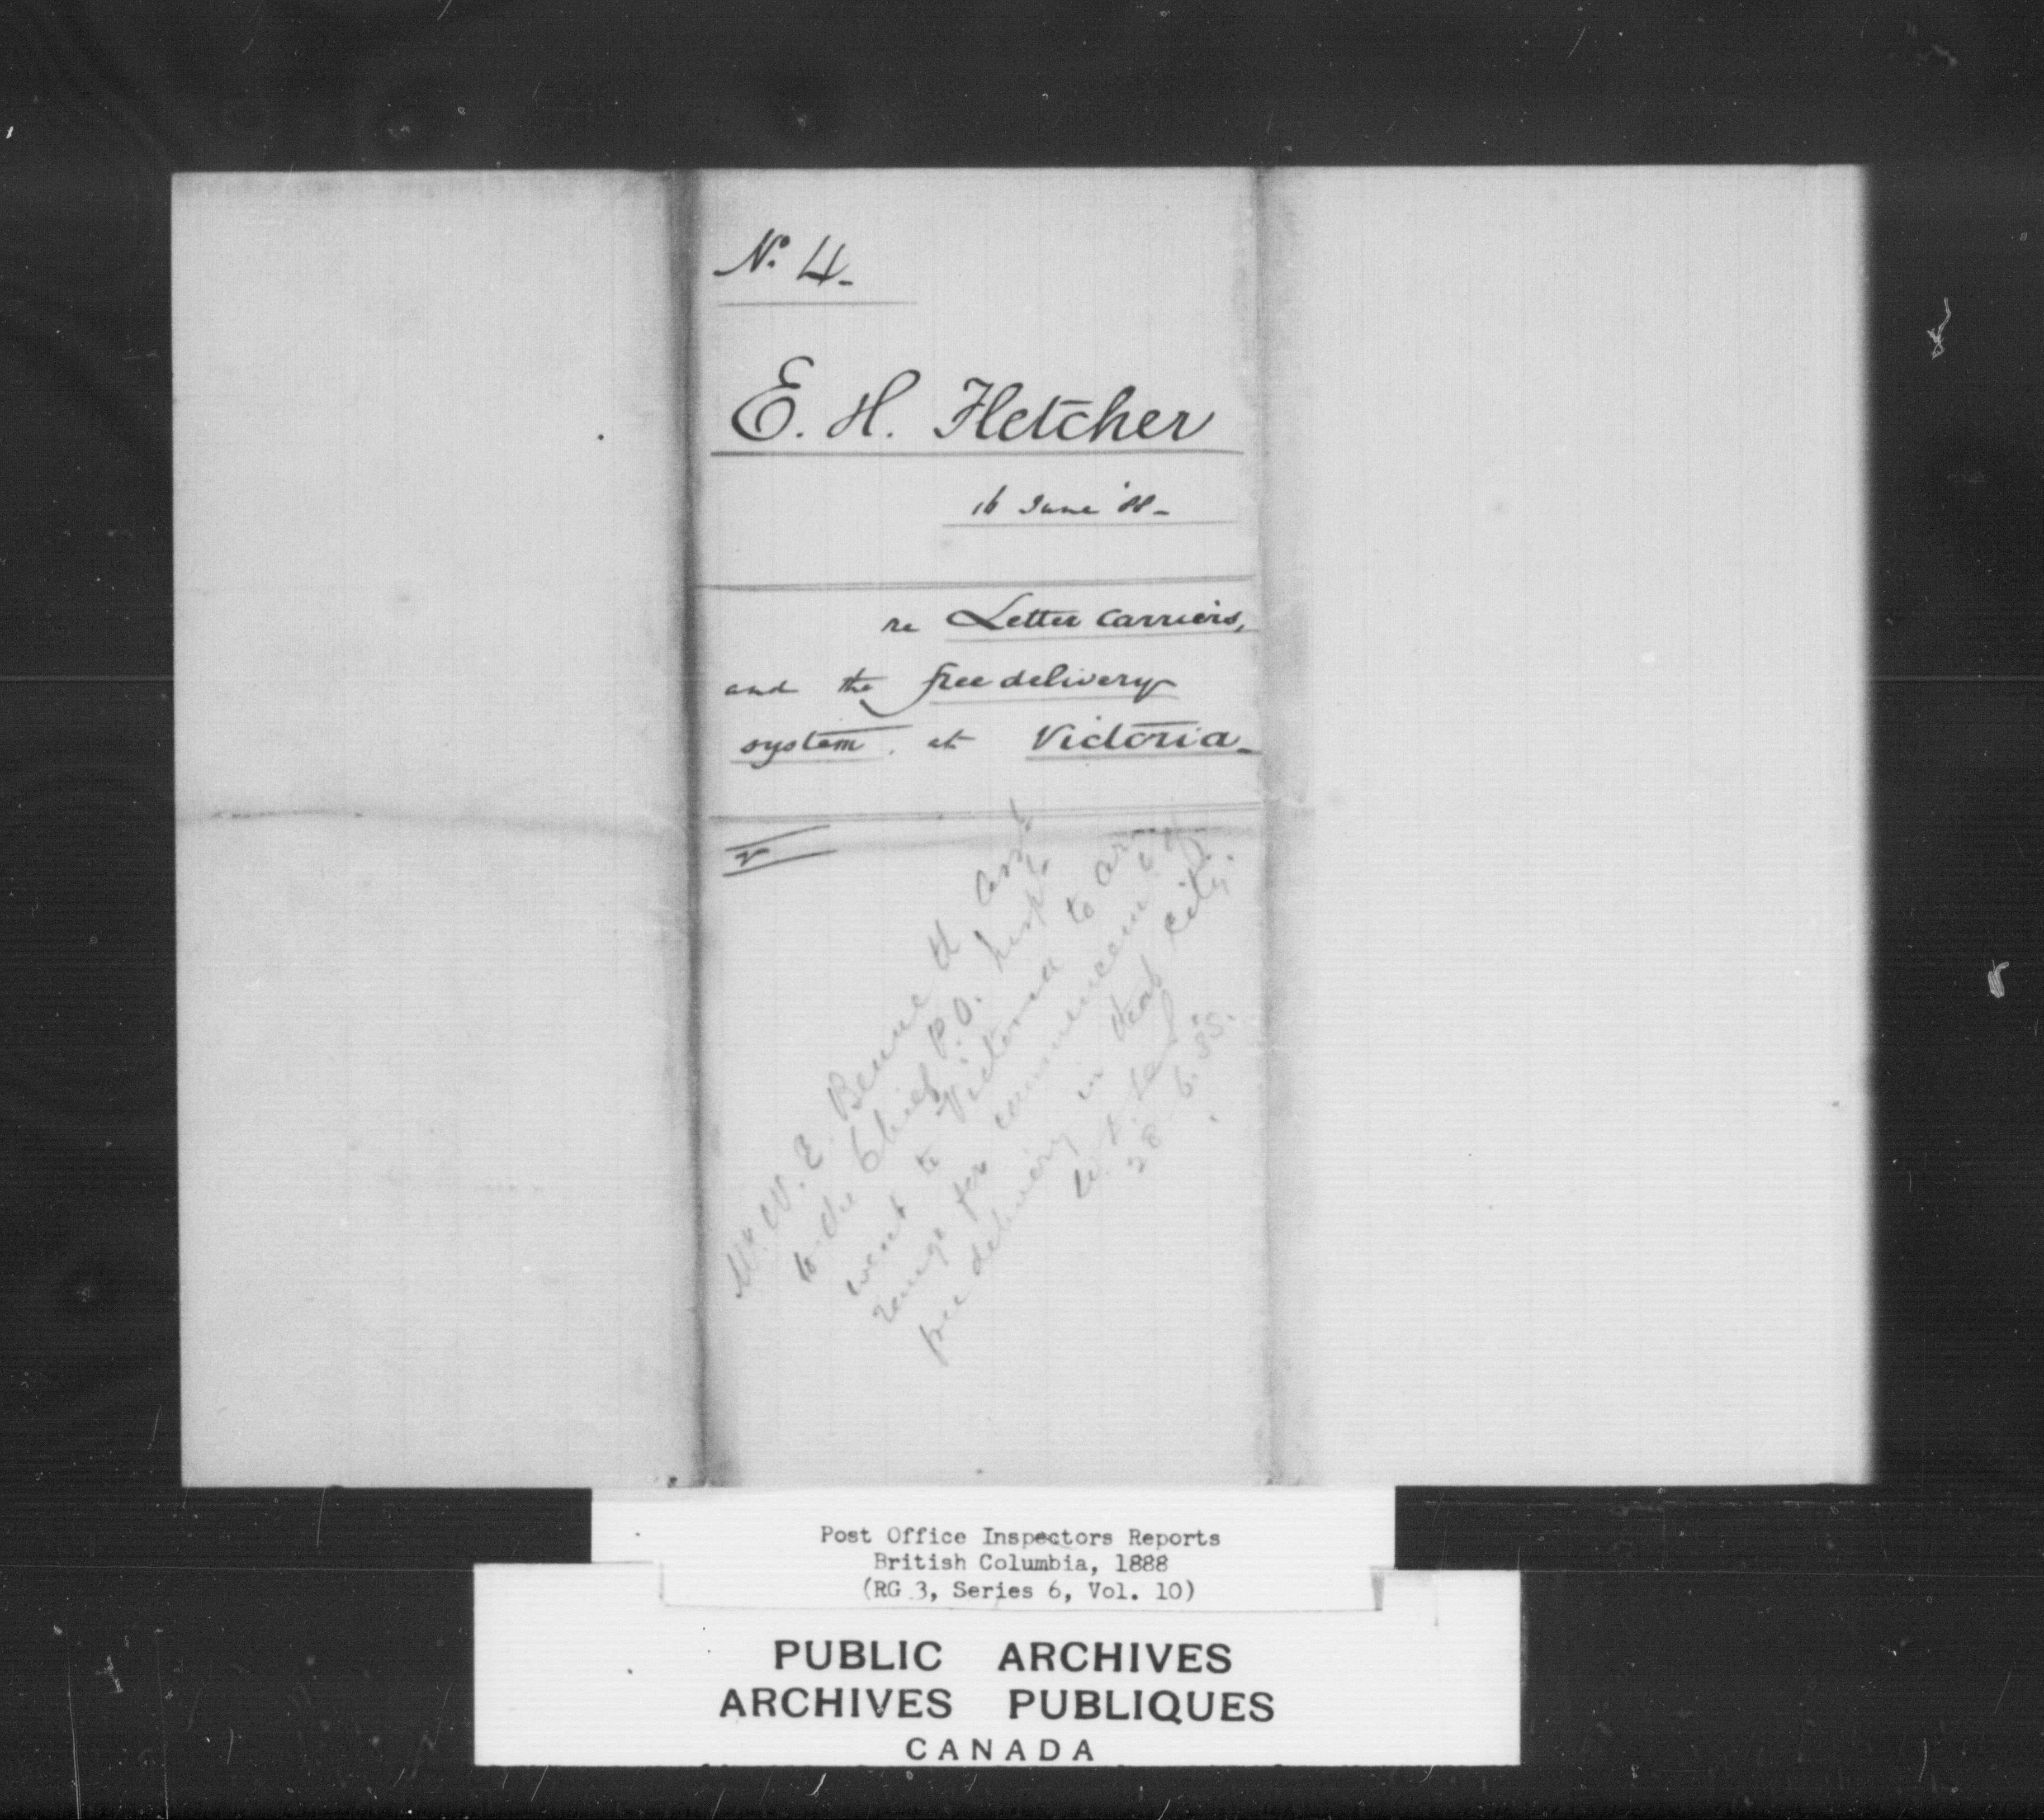 No. 4-
E. H. Fletcher
16 June '88-
re Letter Carriers,
and the free delivery
system. at Victoria-
Mr. W. E. Benne tt, Asst.
to the Chief P.O. Inspr
went to Victoria to ar-
range for commencem't of
free delivery in that city.
28.6.88.
Post Office Inspectors Reports
British Columbia, 1888
(RG 3, Series 6, Vol. 10)
PUBLIC ARCHIVES
ARCHIVES PUBLIQUES
CANADA